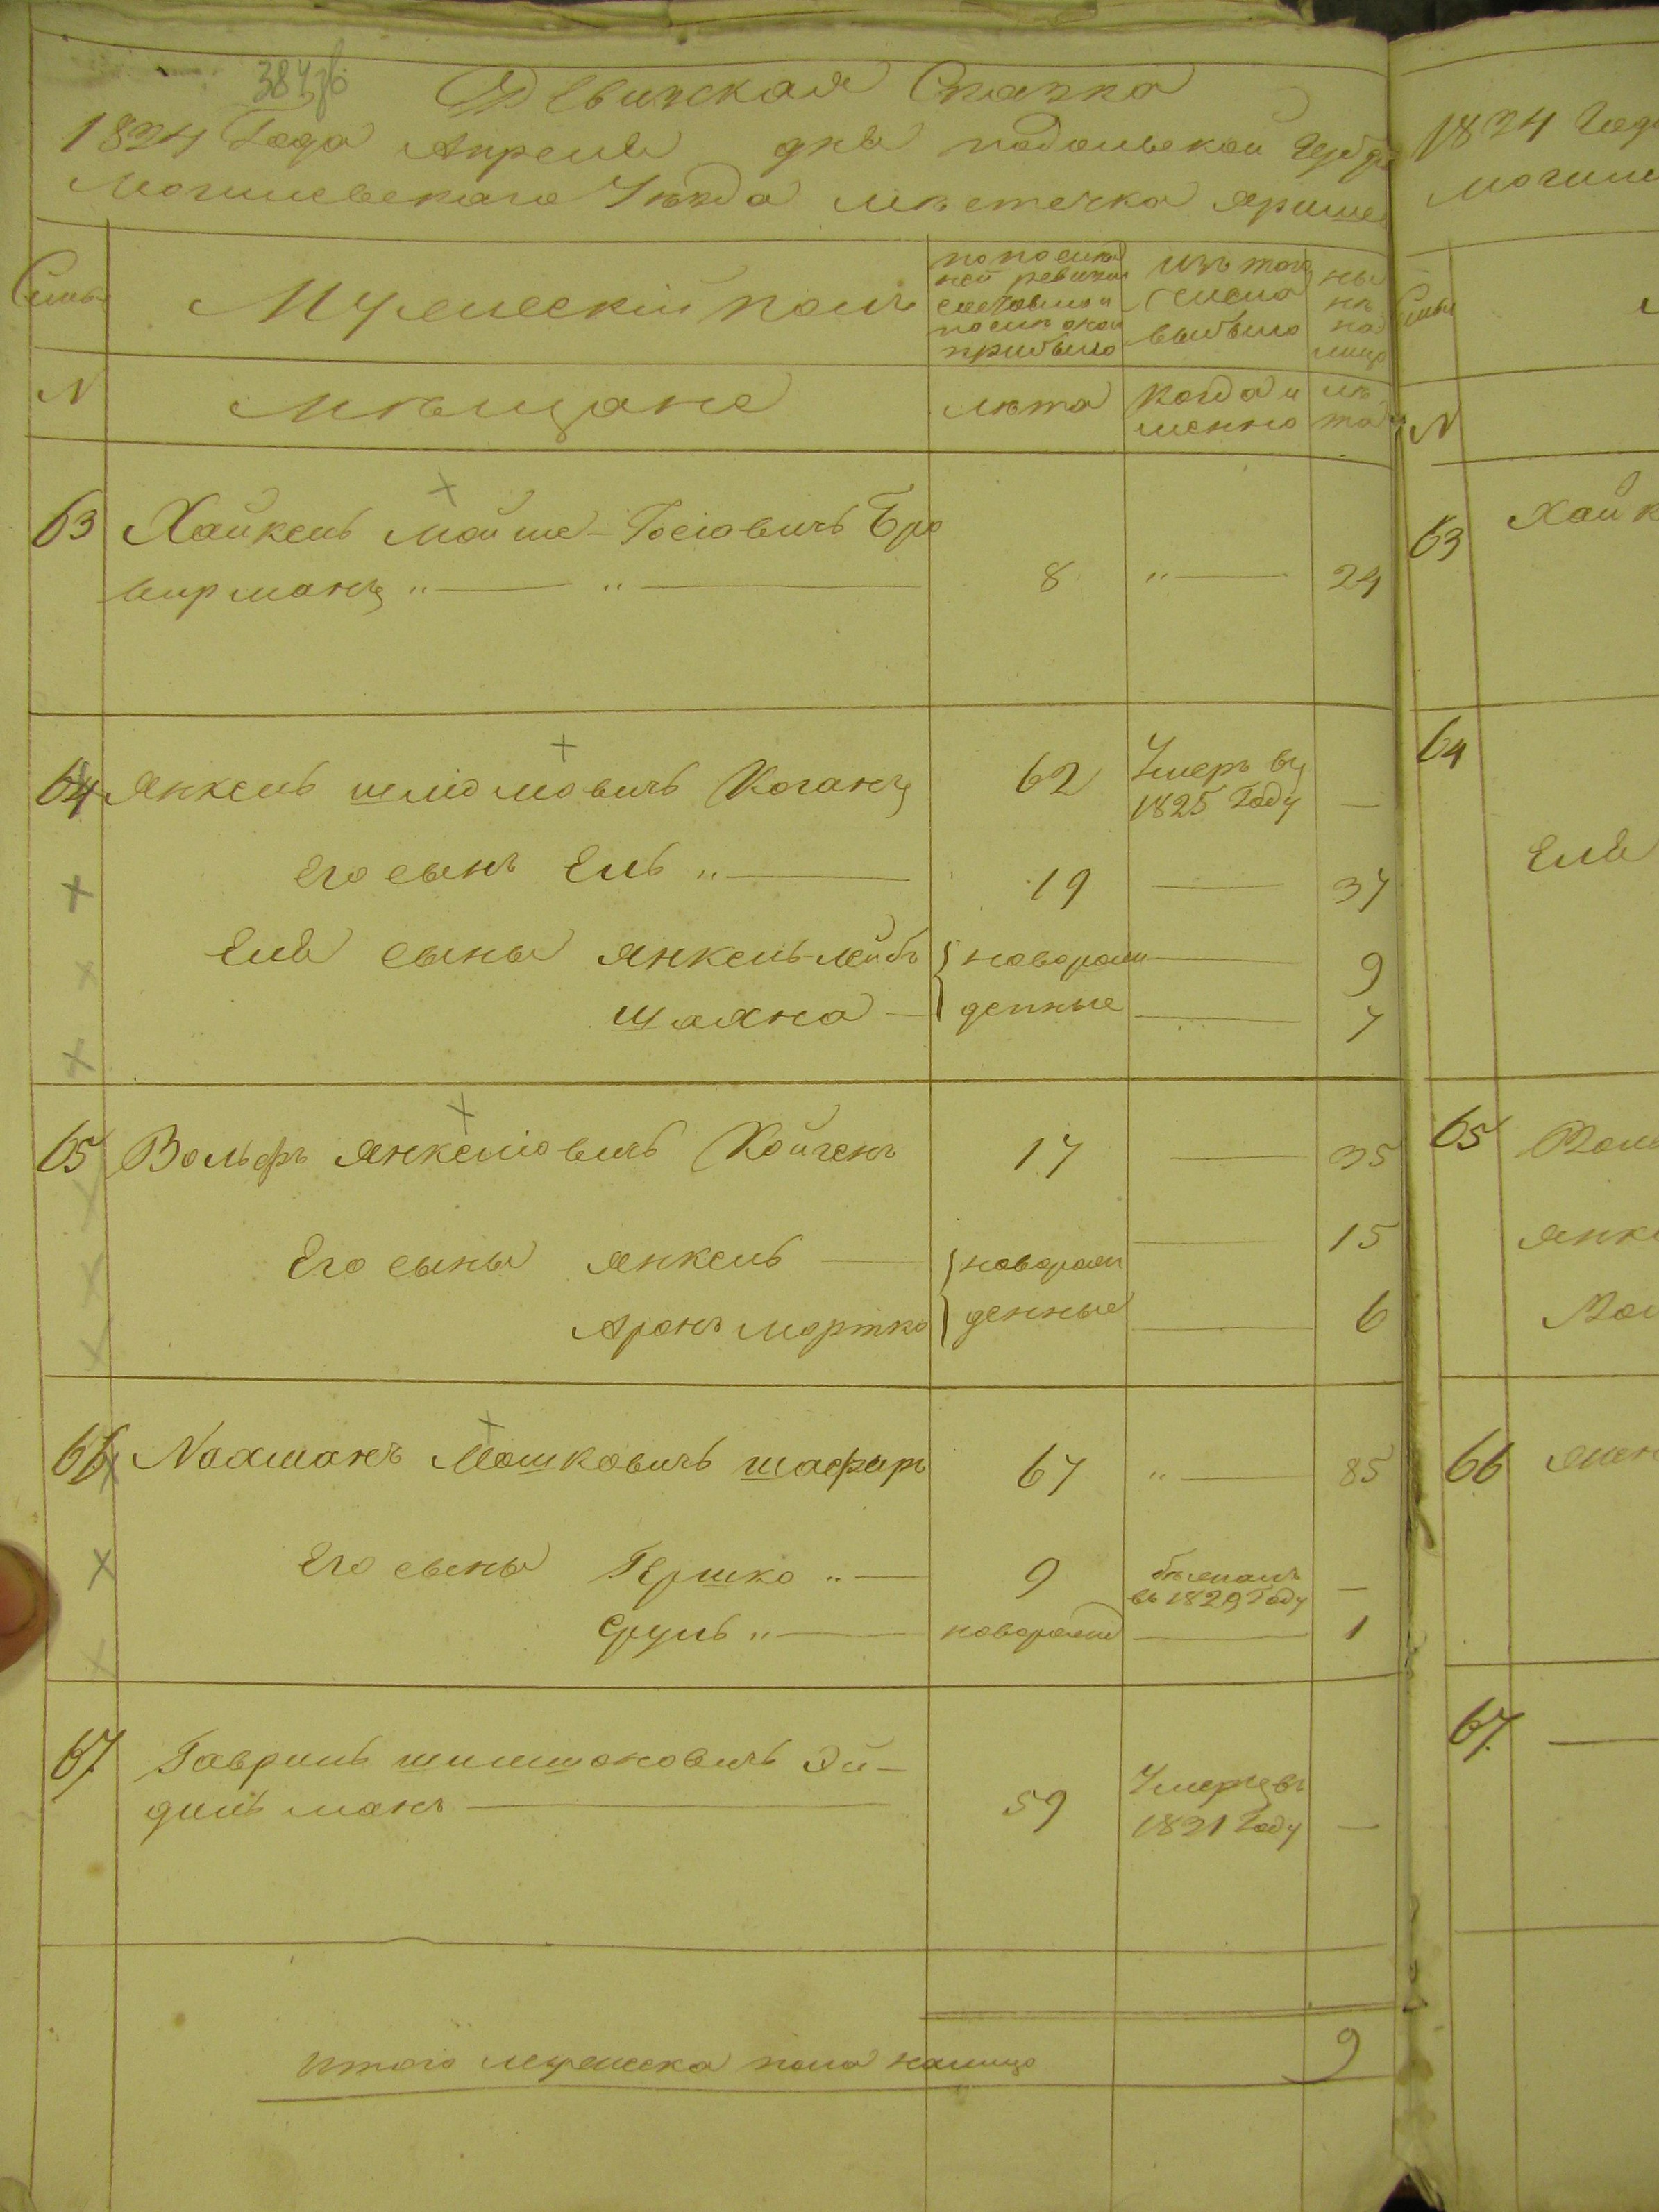 384 об
Ревизская Сказка
1834 Года Апреля дня подольской Губер
Могилевского Уѣзда мѣстечка яришев
Семьи
Мужескій полъ
по послѣд
ней ревизіи
состояло и
послѣ оной
прибыло
Изъ того
числа
выбыло
ны
нѣ
на
лицо
N
мѣщане
лѣта
когда и
менно
лѣ
та
63 Хайкель Мойше-Іосіовичь Бро
вирманъ „ „
8 „ 24
64 Янкель шліомовичь Коганъ 62 Умеръ въ
1825 Году —
Его сынъ Ель „ 19 37
Еля сыны янкель-лейбъ новорож 9
шахна денные 7
65 Вольфъ янкеліовичь Койгенъ 17 35
Его сыны янкель новорож 15
Аронъ мортко денные 6
66 Nахманъ Мошковичь шафиръ 67 „ 85
Его сыны Гершко „ 9 бѣжалъ
въ 1829 Году —
Сруль „ новорожд 1
67 Гавриль шимшоновичь Эй-
дильманъ 59 Умеръ въ
1831 Году —
Итого мужеска пола налицо 9
1834 Года
Могиле
Семьи
N
63 Хайк
64
Еля
65 Воль
янке
Вол
66
67